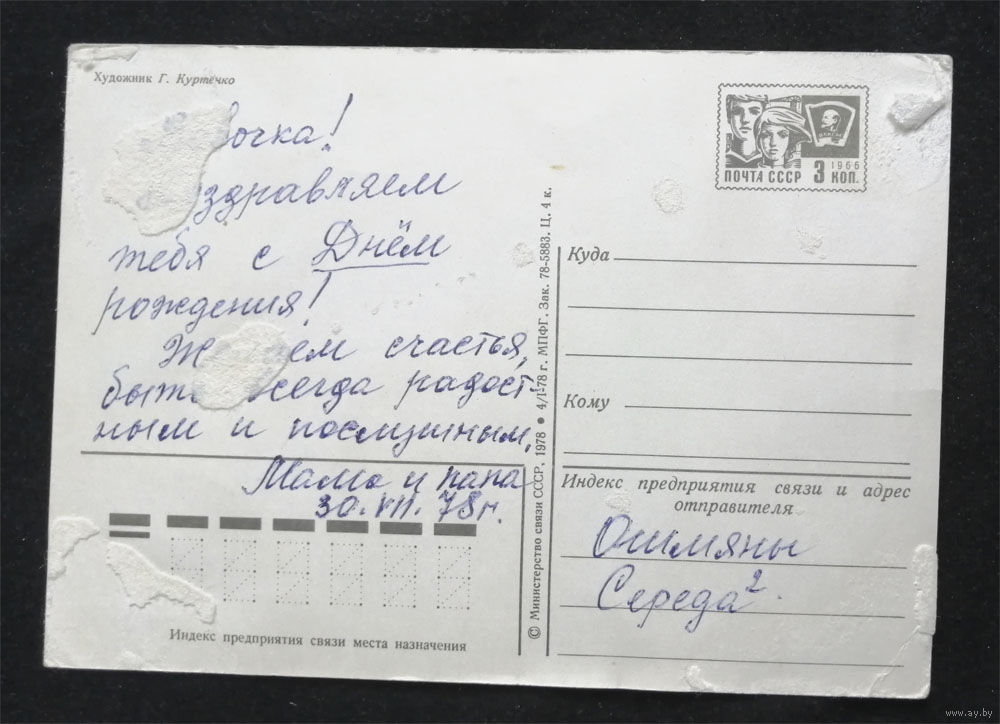 Художник Г. Куртечко
вочка!
здравляем
тебя с Днём
рождения!
счастья,
быть всегда радост-
ным и послушным,
Мама и папа
30.VII.78г.
Индекс предприятия связи места назначения
© Министерство связи СССР, 1978 • 4/I-78 г. МПФГ. Зак. 78-5883. Ц. 4 к.
ВЛКСМ
1966
ПОЧТА СССР 3 КОП.
Куда
Кому
Индекс предприятия связи и адрес
отправителя
Ошмяны
Середа
www.ay.by